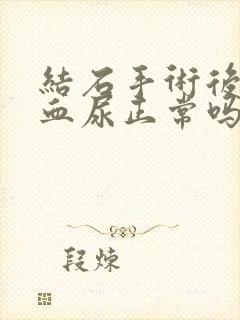 結石手術後
血尿正常吗
段炼